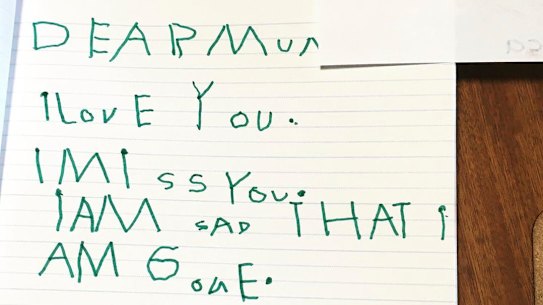 DEAR Mum
I LovE You.
I MISS You.
I AM SAD THAT I
AM GonE.